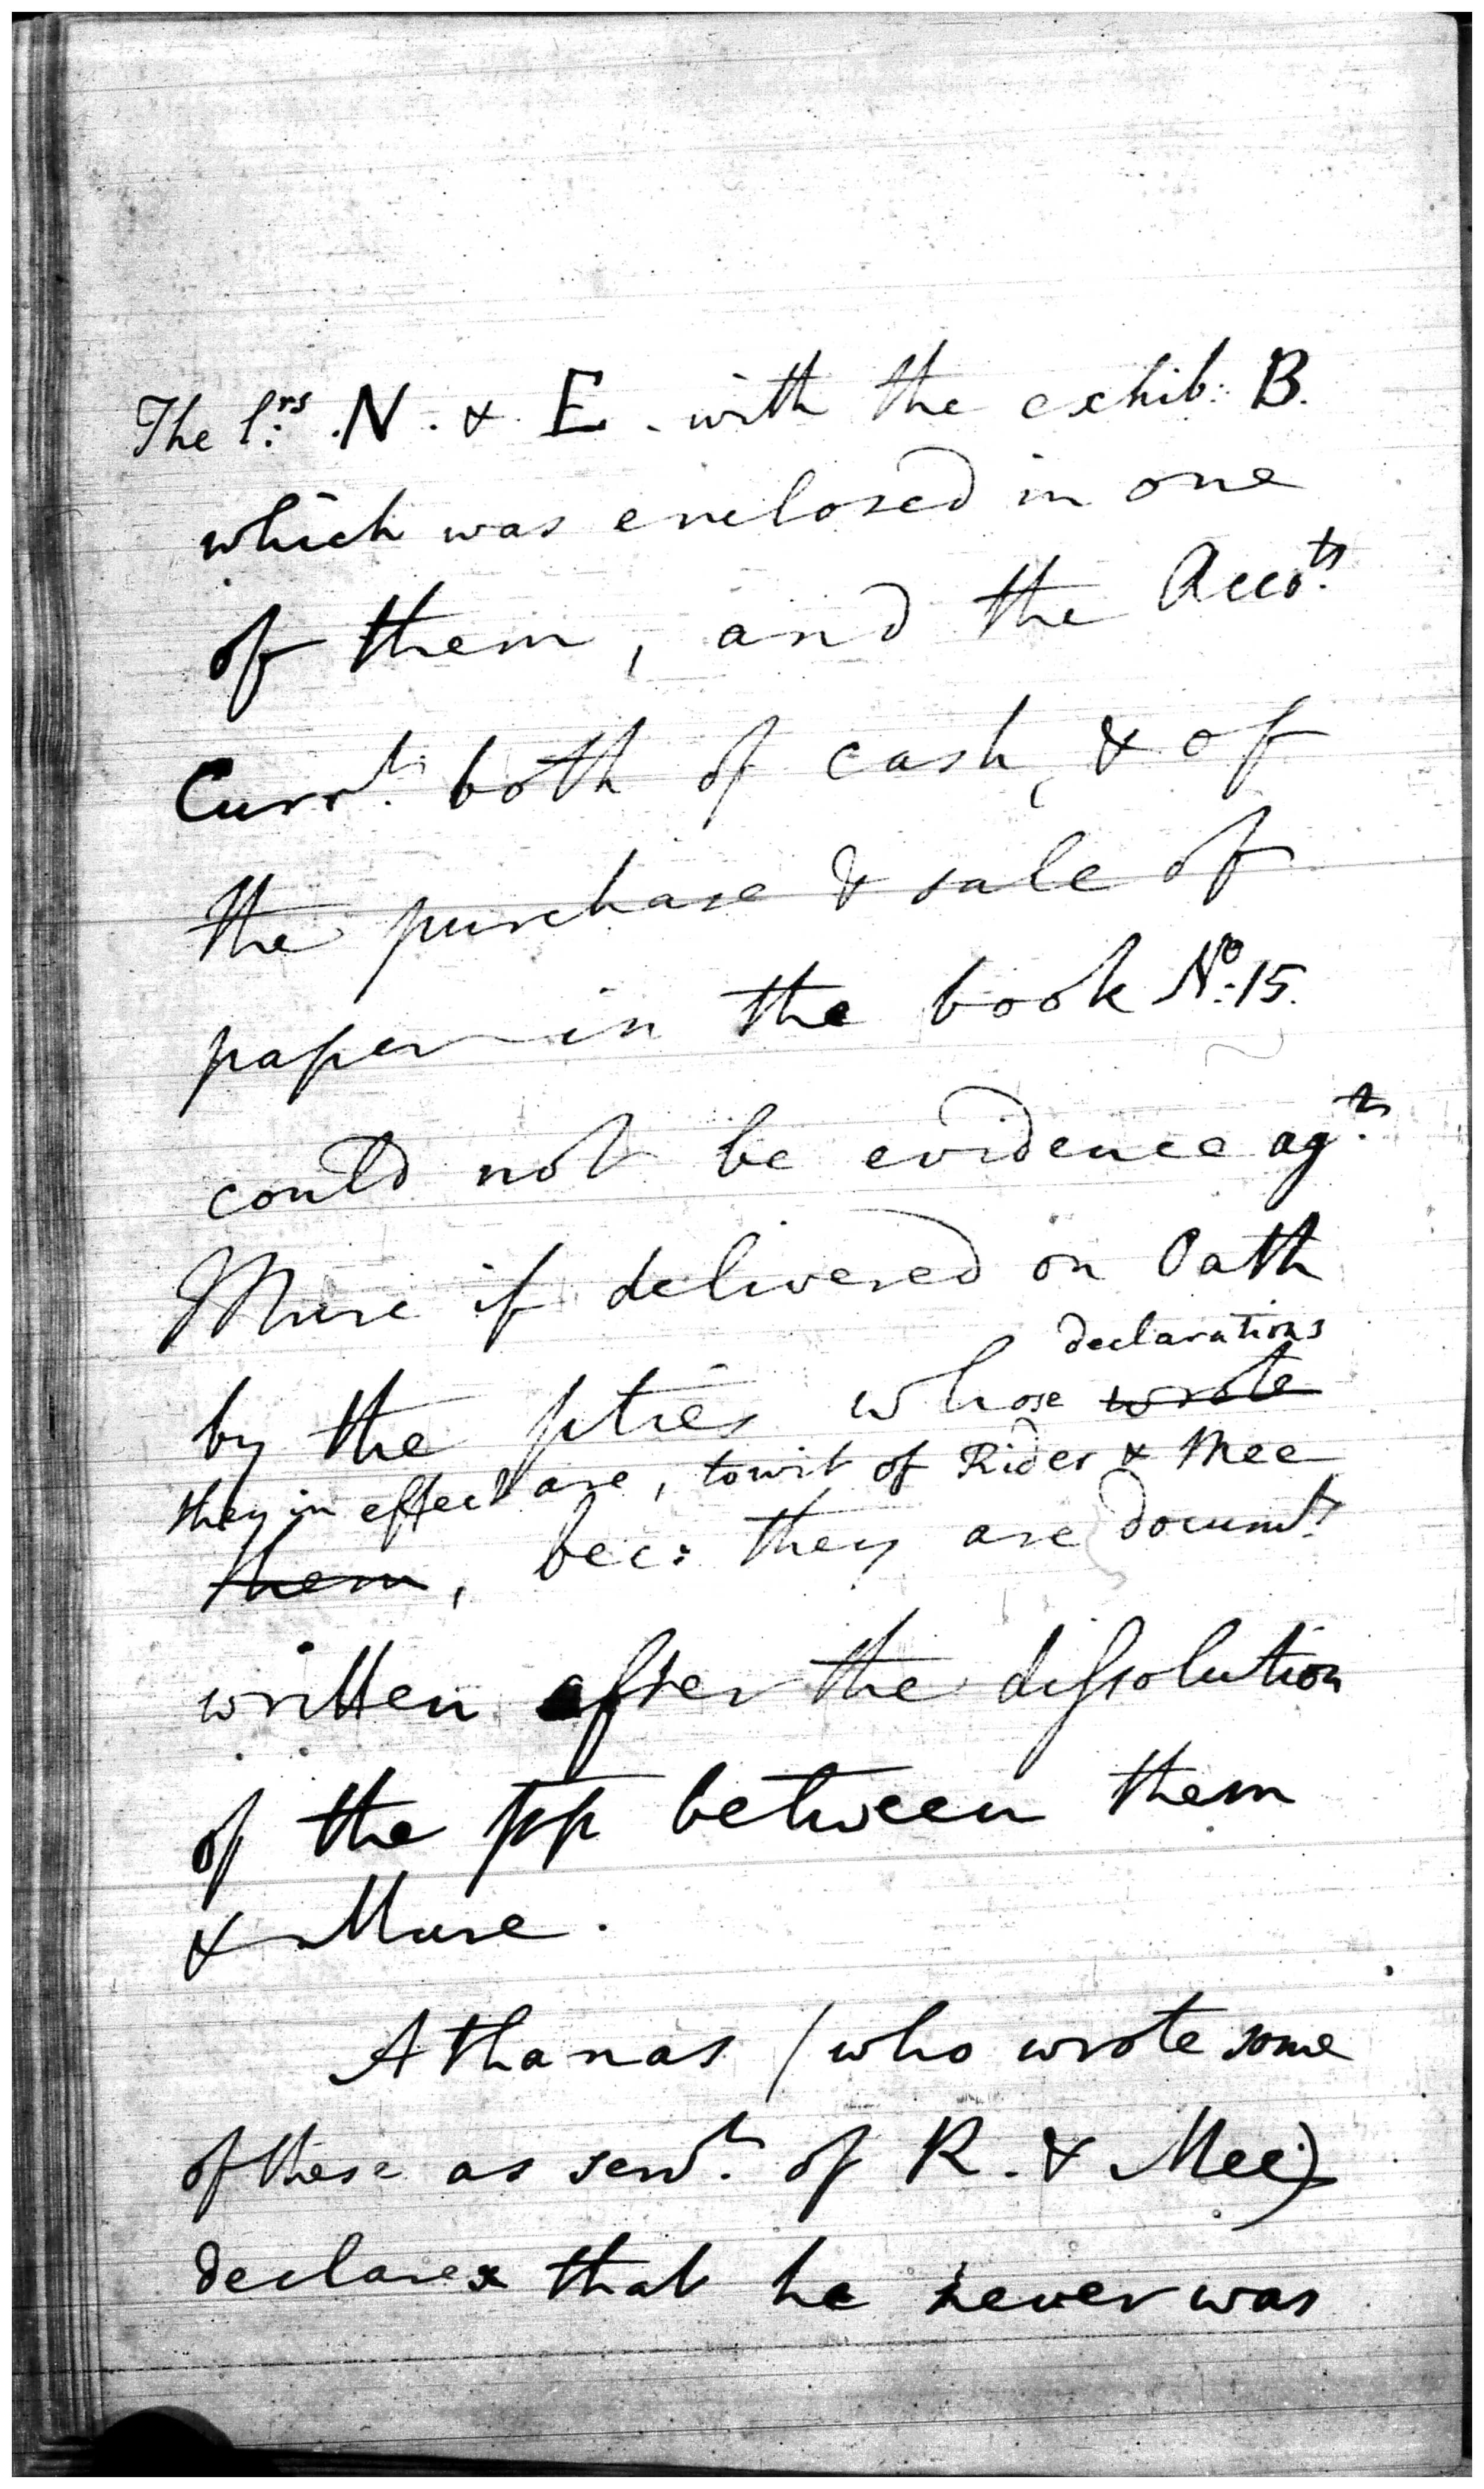 The l:rs .N. & E. with the exhib: B.
which was enclosed in one
of them, and the Acco.ts
Curr.t both of cash, & of
the purchase & sale of
paper in the book No. 15.
could not be evidence ag.t
Mure if delivered on Oath
declarations
by the pties whose wrote
they in effect are, towit of Rider & Mee
them, bec: they are documts
written after the dissolution
of the pp between them
& Mure.
Athanas (who wrote some
of these as serv.t of R. & Mee)
declares that he never was